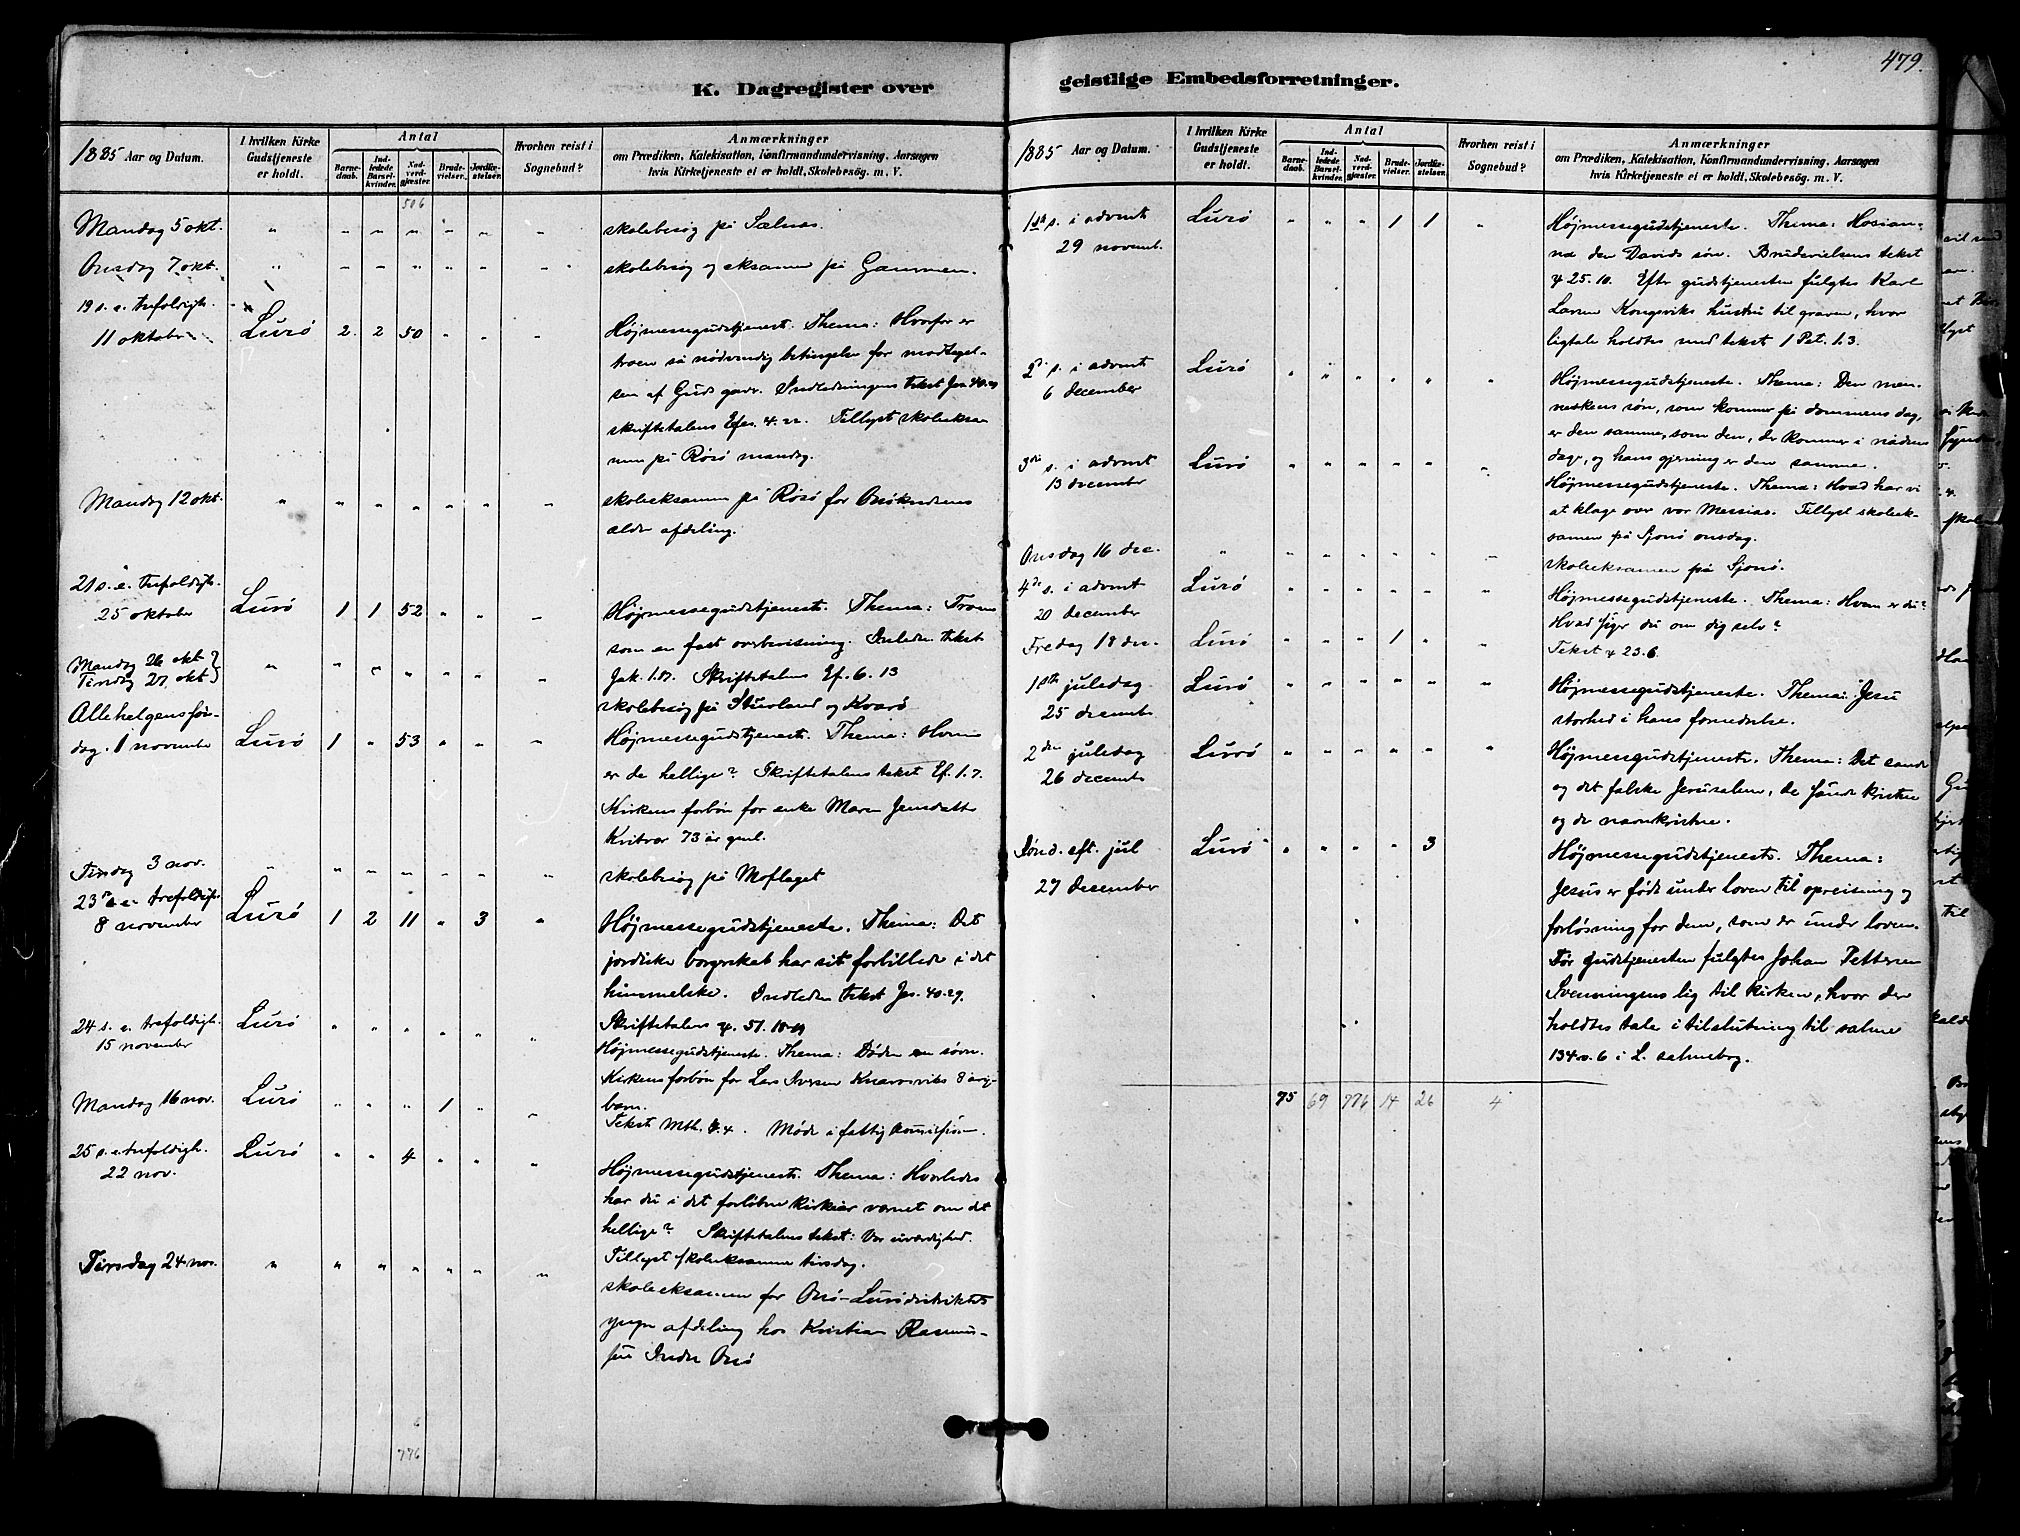 479.
K. Dagregister over
geistlige Embedsforretninger.
1885 Aar og Datum.
I hvilken Kirke Gudstjeneste er holdt.
Antal
Barnedaab.
Indledede Barselkvinder.
Nadverdgjæster.
Brudevielser.
Jordfæstelser.
Hvorhen reist i Sognebud?
Anmærkninger
om Prædiken, Katekisation, Konfirmandundervisning, Aarsagen
hvis Kirketjeneste ei er holdt, Skolebesøg. m. V.
506
Mandag 5 okt. " " " " " " " skolebesøg på Selnæs.
Onsdag 7. okt. " " " " " " " skolebesøg og eksamen på Gammen.
19 s. e. trefoldigh.
11 oktober Lurö 2 2 50 " " " Højmessegudstjenest. Thema: Hvorfor er
troen så nødvendig betingelse for modtagel-
sen af Guds gave. Indledningens tekst Jes. 40.29
skriftetalens Efes. 4.22. Tillyst skoleeksa
men på Røsö mandag.
Mandag 12 okt. " " " " " " " skoleeksamen på Røsö for Onsökredsens
ældre afdeling.
21 s. e. trefoldigh.
25 oktober Lurö 1 1 52 " " " Højmessegudstjenest. Thema: Troen
som en fast overbevisning. Indleden tekst
Jak. 1.17. Skriftetalens Ef. 6.13
Mandag 26 okt }
Tirsdag 27. okt } " " " " " " " skolebesøg på Stuvland og Kvarö
Allehelgenssøn-
dag. 1 november Lurö 1 " 53 " " " Højmessegudstjenest. Thema: Hvem
er de hellige? Skriftetalens tekst Ef. 1.7.
Kirkens forbön for enke Maren Jensdatter
Kvitvær 73 år gml.
Tirsdag 3 nov. " " " " " " " skolebesøg på Moflaget
23de s. e. trefoldigh.
8 november Lurö 1 2 11 " 3 " Højmessegudstjeneste. Thema: Det
jordiske borgerskab har sit forbillede i det
himmelske. Indleden tekst Jes. 40.29.
Skriftetalens ψ. 51. 18-19
24 s. e. trefoldigh.
15 november Lurö " " " " " " Højmessegudstjeneste. Thema: Døden en søvn.
Kirkens forbön for Lars Iversen Knarsviks 8 årig
barn.
Mandag 16 nov. Lurö " " " 1 " " Tekst Mth. 4.4. Møde i fattigkommissionen.
25 s. e. trefoldigh.
22 nov. Lurö " " 4 " " " Højmessegudstjenest. Thema: Hvorledes
har du i det forløbne kirkeår værnet om det
hellige? Skriftetalens tekst: Vor uværdighed.
Tillyst skoleeksamen tirsdag.
Tirsdag 24 nov. " " " " " " " skoleeksamen for Onsö-Lurödistriktets
yngre afdeling hos Kristian Rasmus-
sen Indre Onsö
6
776
1885 Aar og Datum.
I hvilken Kirke Gudstjeneste er holdt.
Antal
Barnedaab.
Indledede Barselkvinder.
Nadverdgjæster.
Brudevielser.
Jordfæstelser.
Hvorhen reist i Sognebud?
Anmærkninger
om Prædiken, Katekisation, Konfirmandundervisning, Aarsagen
hvis Kirketjeneste ei er holdt, Skolebesøg. m. V.
1ste s. i advent
29 novemb. Lurö " " " 1 1 " Højmessegudstjeneste. Thema: Hosian-
na den Davids søn. Brudevielsens tekst
ψ 25.10. Efter gudstjenesten fulgtes Karl
Larsen Kongsviks hustru til graven, hvor
ligtale holdtes med tekst 1 Pet. 1.3.
2den s. i advent
6 december Lurö " " " " " " Højmessegudstjeneste. Thema: Den men-
neskens søn, som kommer på dommens dag,
er den samme, som den, der kommer i nådens
dage, og hans gjerning er den samme.
3die s. i advent
13 december Lurö " " " " " " Højmessegudstjeneste. Thema: Hvad har vi
at klage over vor Messias. Tillyst skoleek-
samen på Sjonö onsdag.
Onsdag 16 dec. " " " " " " " skoleeksamen på Sjonö.
4de s. i advent
20 december Lurö " " " " " " Højmessegudstjeneste. Thema: Hvem er du?
Hvad siger du om dig selv?
Fredag 18 dec. Lurö " " " 1 " " Tekst ψ 23.6.
1ste juledag
25 decemb. Lurö " " " " " " Højmessegudstjeneste. Thema: Jesu
storhed i hans fornedrelse.
2den juledag
26 decemb. Lurö " " " " " " Højmessegudstjeneste. Thema: Det sande
og det falske Jerusalem, de sande kristne
og de navnkristne.
Sönd. eft. jul
27 december Lurö " " " " 3 Højmessegudstjeneste. Thema:
Jesus er født under loven til opreisning og
forløsning for dem, som er under loven.
Før gudstjenesten fulgtes Johan Pettersen
Svenningens lig til kirken, hvor der
holdtes tale i tilslutning til salme
134 v. 6 i L. salmebog.
75 69 776 14 26 4